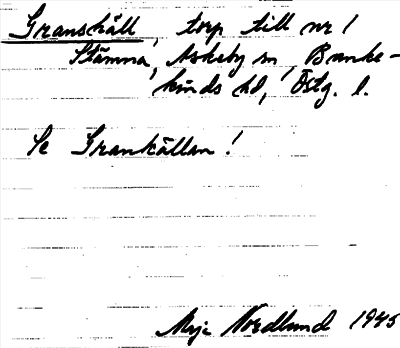 Granskäll, torp till nr 1
Stämna, Askeby sn, Banke-
kinds hd, Östg. l.
Se Grankällan!
Maja Nordlund 1945